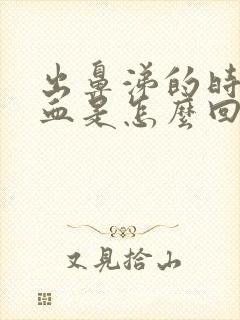 出鼻涕的時
血是怎麼回
又見拾山